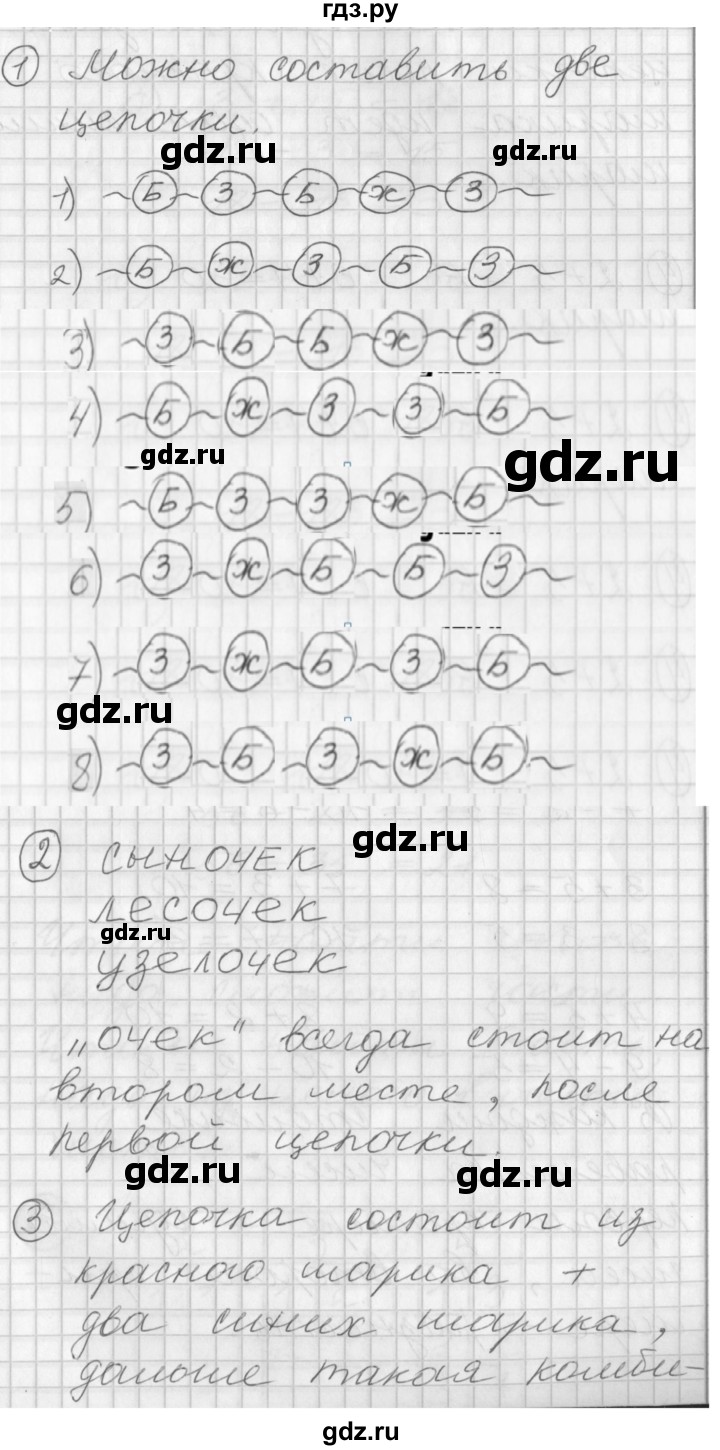 гдз.ру
1 Можно составить две
цепочки.
gdz.ru gdz.ru
1) Б З Б Ж З
2) Б Ж З Б З
3) З Б Б Ж З
4) Б Ж З З Б
gdz.ru gdz.ru
5) Б З З Ж Б
6) З Ж Б Б З
7) З Ж Б З Б
gdz.ru
8) З Б З Ж Б
gdz.ru
2 сыночек
лесочек
gdz.ru
узелочек
„очек" всегда стоит на
втором месте, после
первой цепочки.
gdz.ru gdz.ru
3 Цепочка состоит из
красного шарика +
два синих шарика,
дальше такая комби-
gdz.ru